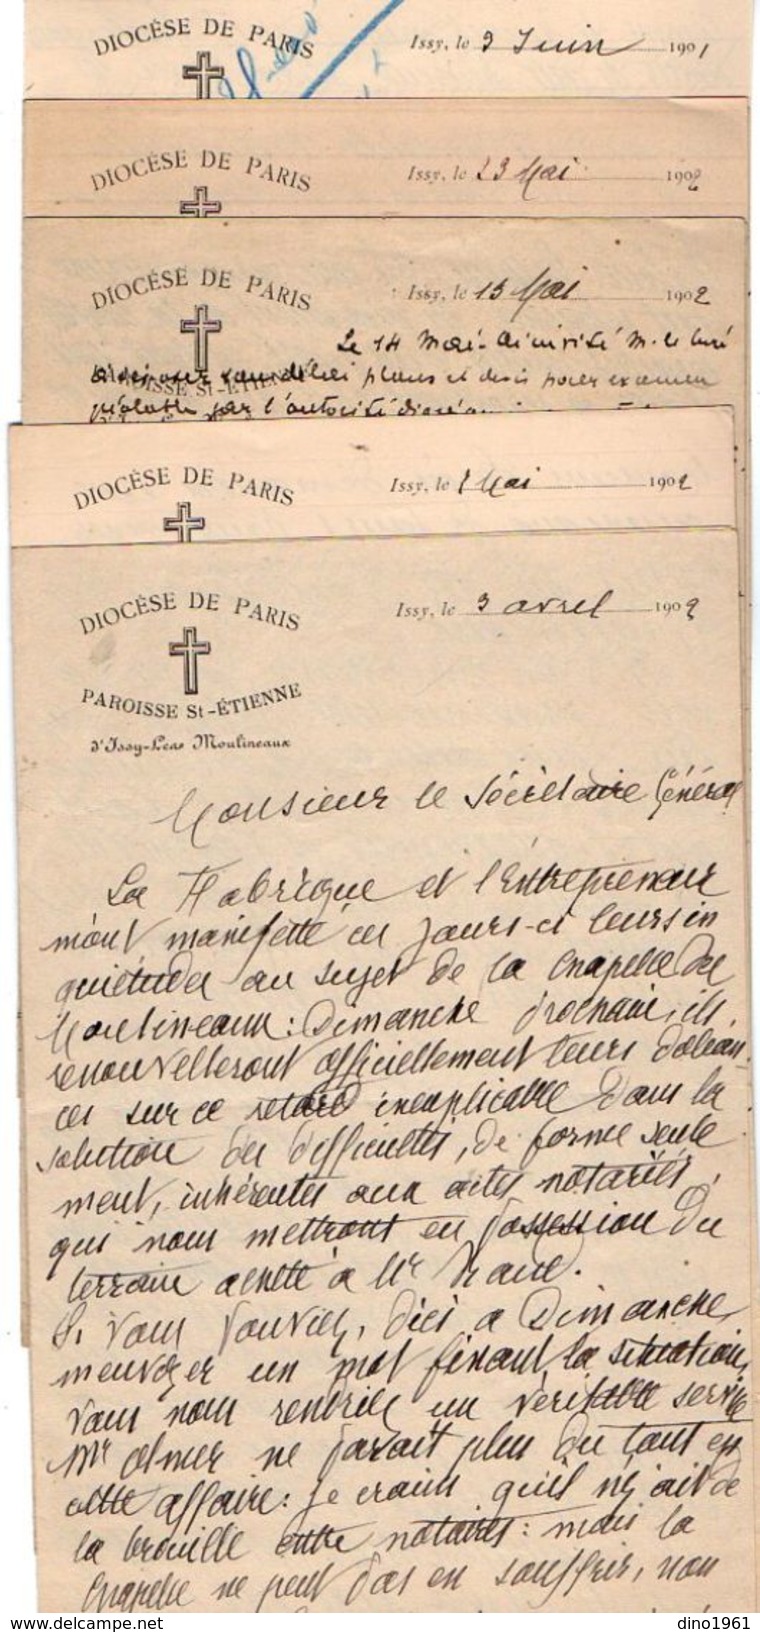 DIOCÈSE DE PARIS
Issy, le 9 Juin 1901
DIOCÈSE DE PARIS
Issy, le 23 Mai 1902
DIOCÈSE DE PARIS
Issy, le 15 Mai 1902
Le 14 Mai M. le Curé
PAROISSE St-ÉTIENNE
plans et devis pour examen
par l'autorité
DIOCÈSE DE PARIS
Issy, le Mai 1902
DIOCÈSE DE PARIS
Issy, le 3 avril 1902
PAROISSE St-ÉTIENNE
d'Issy-Les Moulineaux
Monsieur le Sécrétaire Général
La Fabrique et l'Entrepreneur
m'ont manifesté ces jours-ci leurs in
quiétudes au sujet de la Chapelle des
Moulineaux : Dimanche prochain, ils
renouvelleront officiellement leurs doléan
ces sur ce retard inexplicable dans la
solution des difficultés, de forme seule
ment, inhérentes aux actes notariés,
qui nous mettront en possession du
terrain acheté à Mr
Si vous pouviez, d'ici à Dimanche,
m'envoyer un mot fixant la situation,
vous nous rendriez un véritable service
Mr Olmer ne paraît plus du tout en
cette affaire : je crains qu'il n'y ait de
la brouille entre notaires : mais la
Chapelle ne peut pas en souffrir, non
dino1961